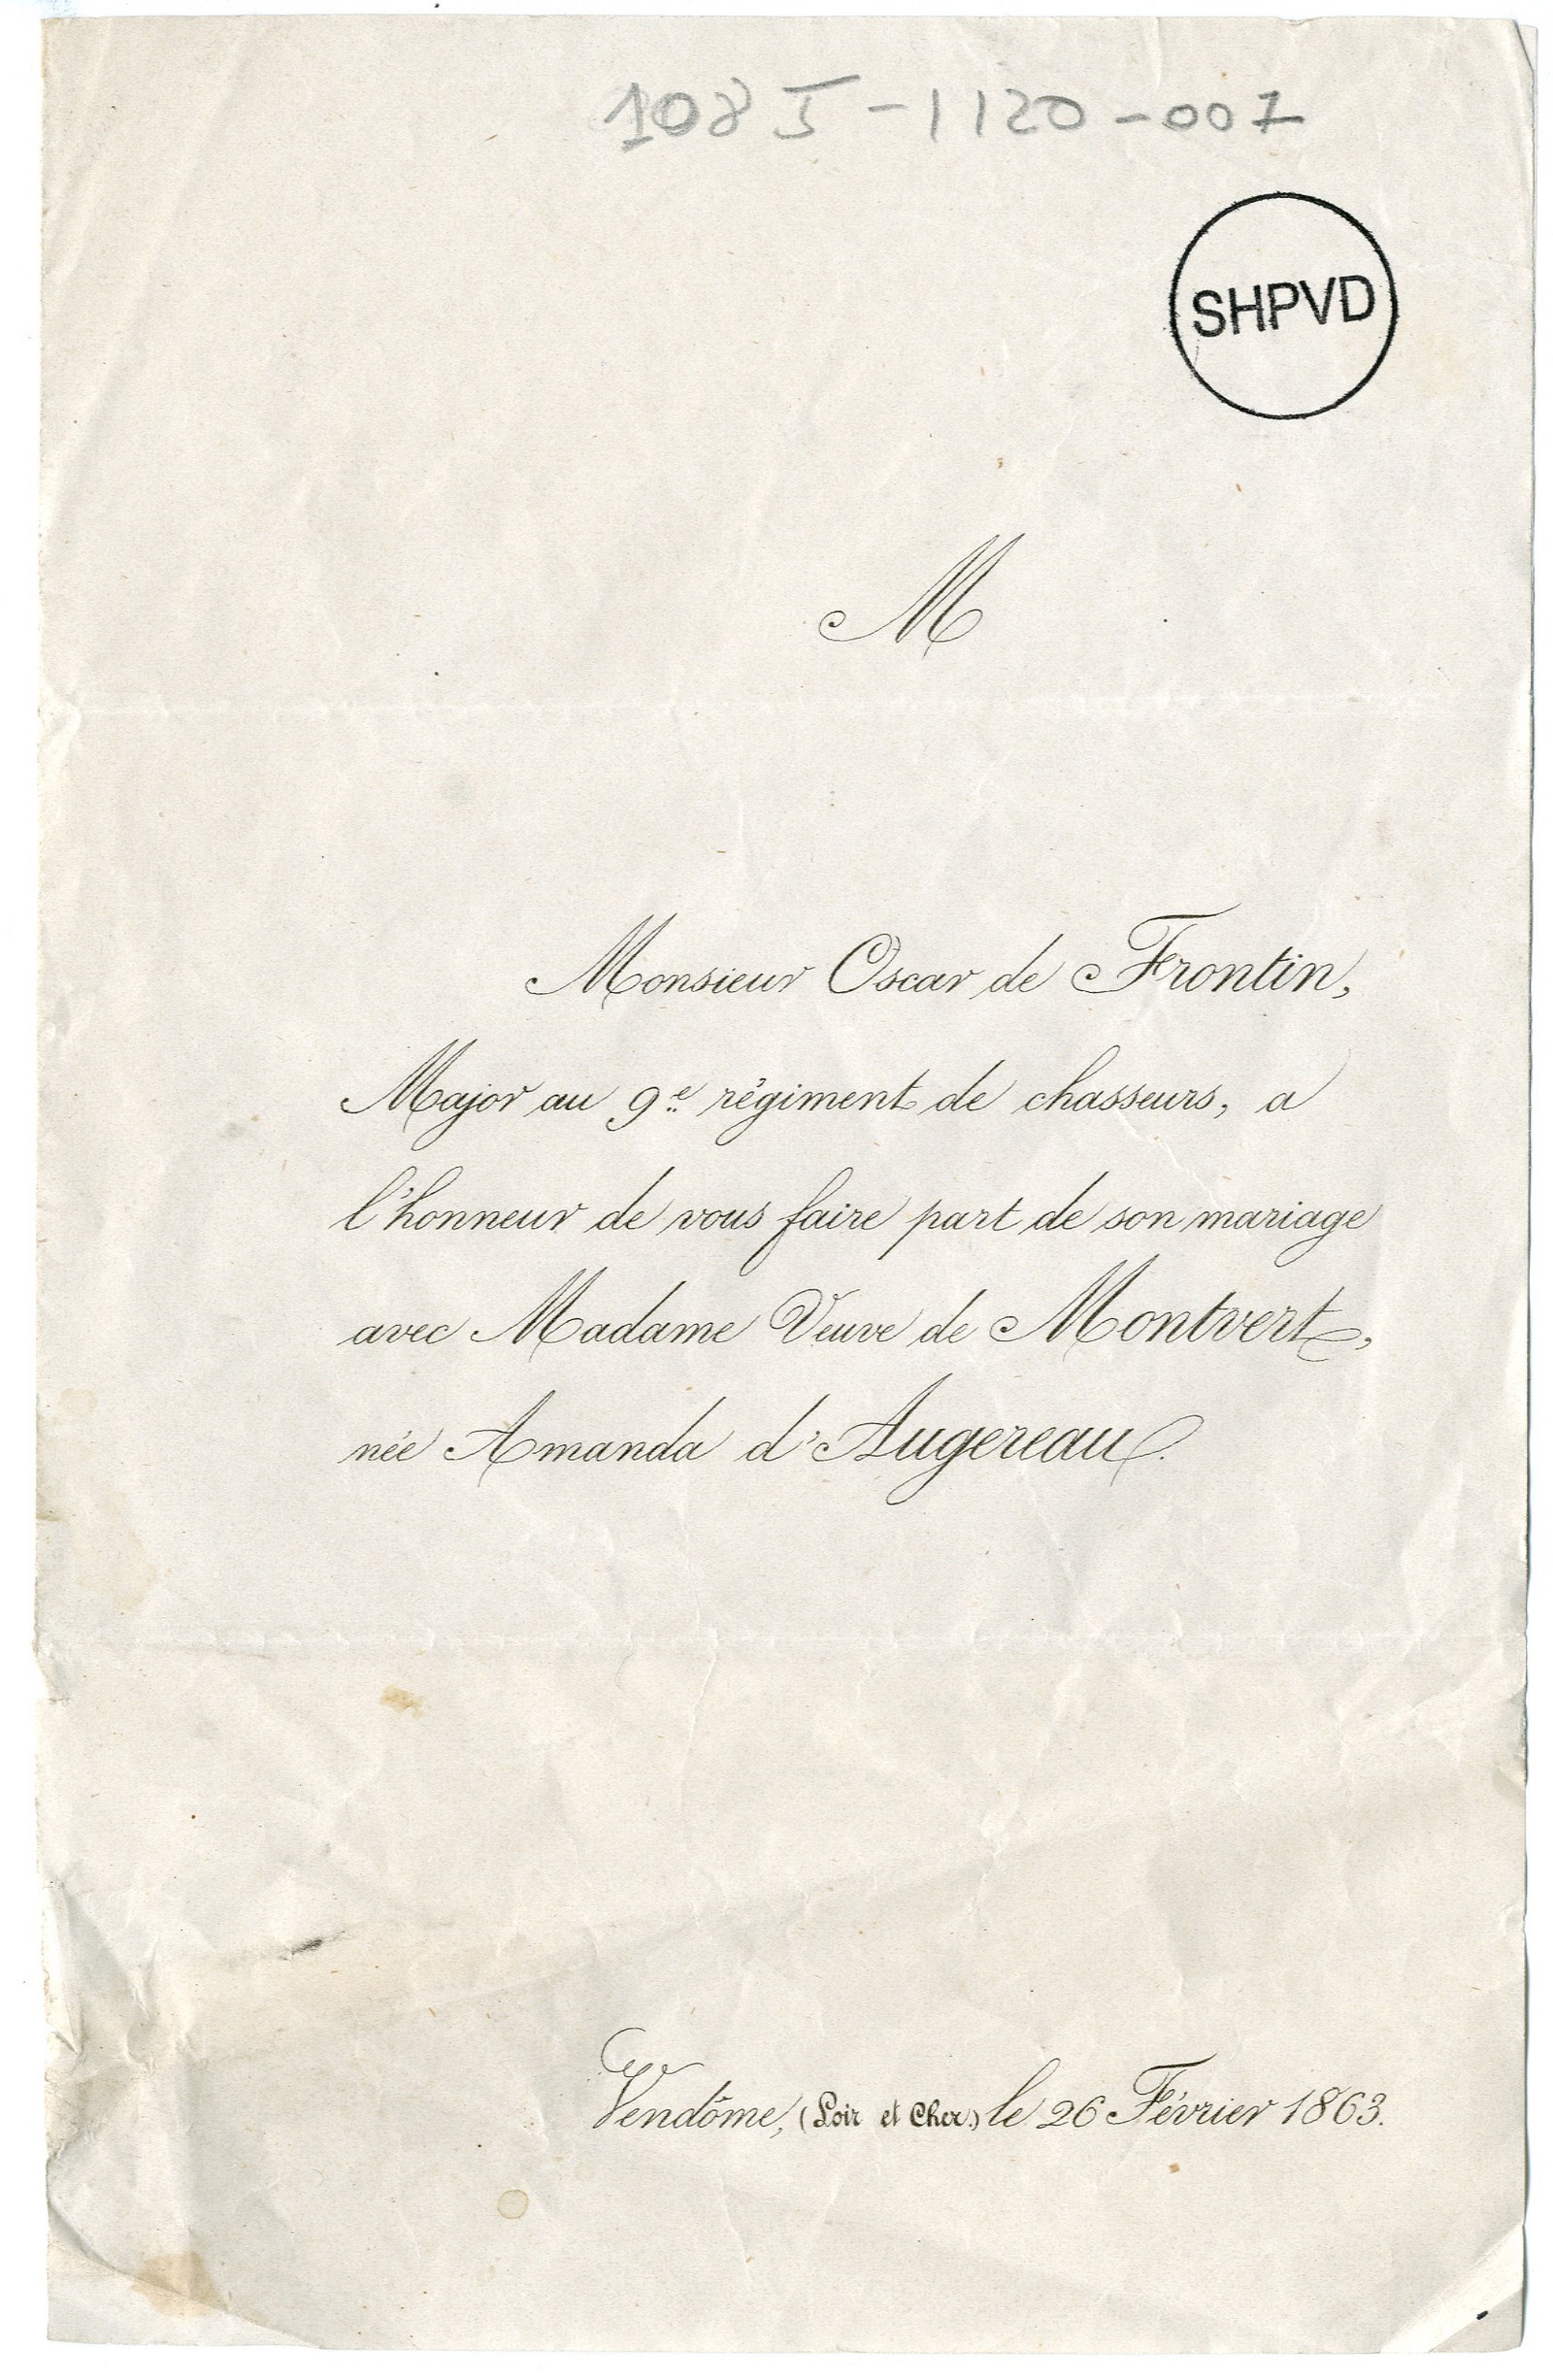 108 J - 1120 - 007
SHPVD
M
Monsieur Oscar de Frontin,
Major au 9e régiment de chasseurs, a
l'honneur de vous faire part de son mariage
avec Madame Veuve de Montvert,
née Amanda d'Augereau.
Vendôme, (Loir et Cher) le 26 Février 1863.